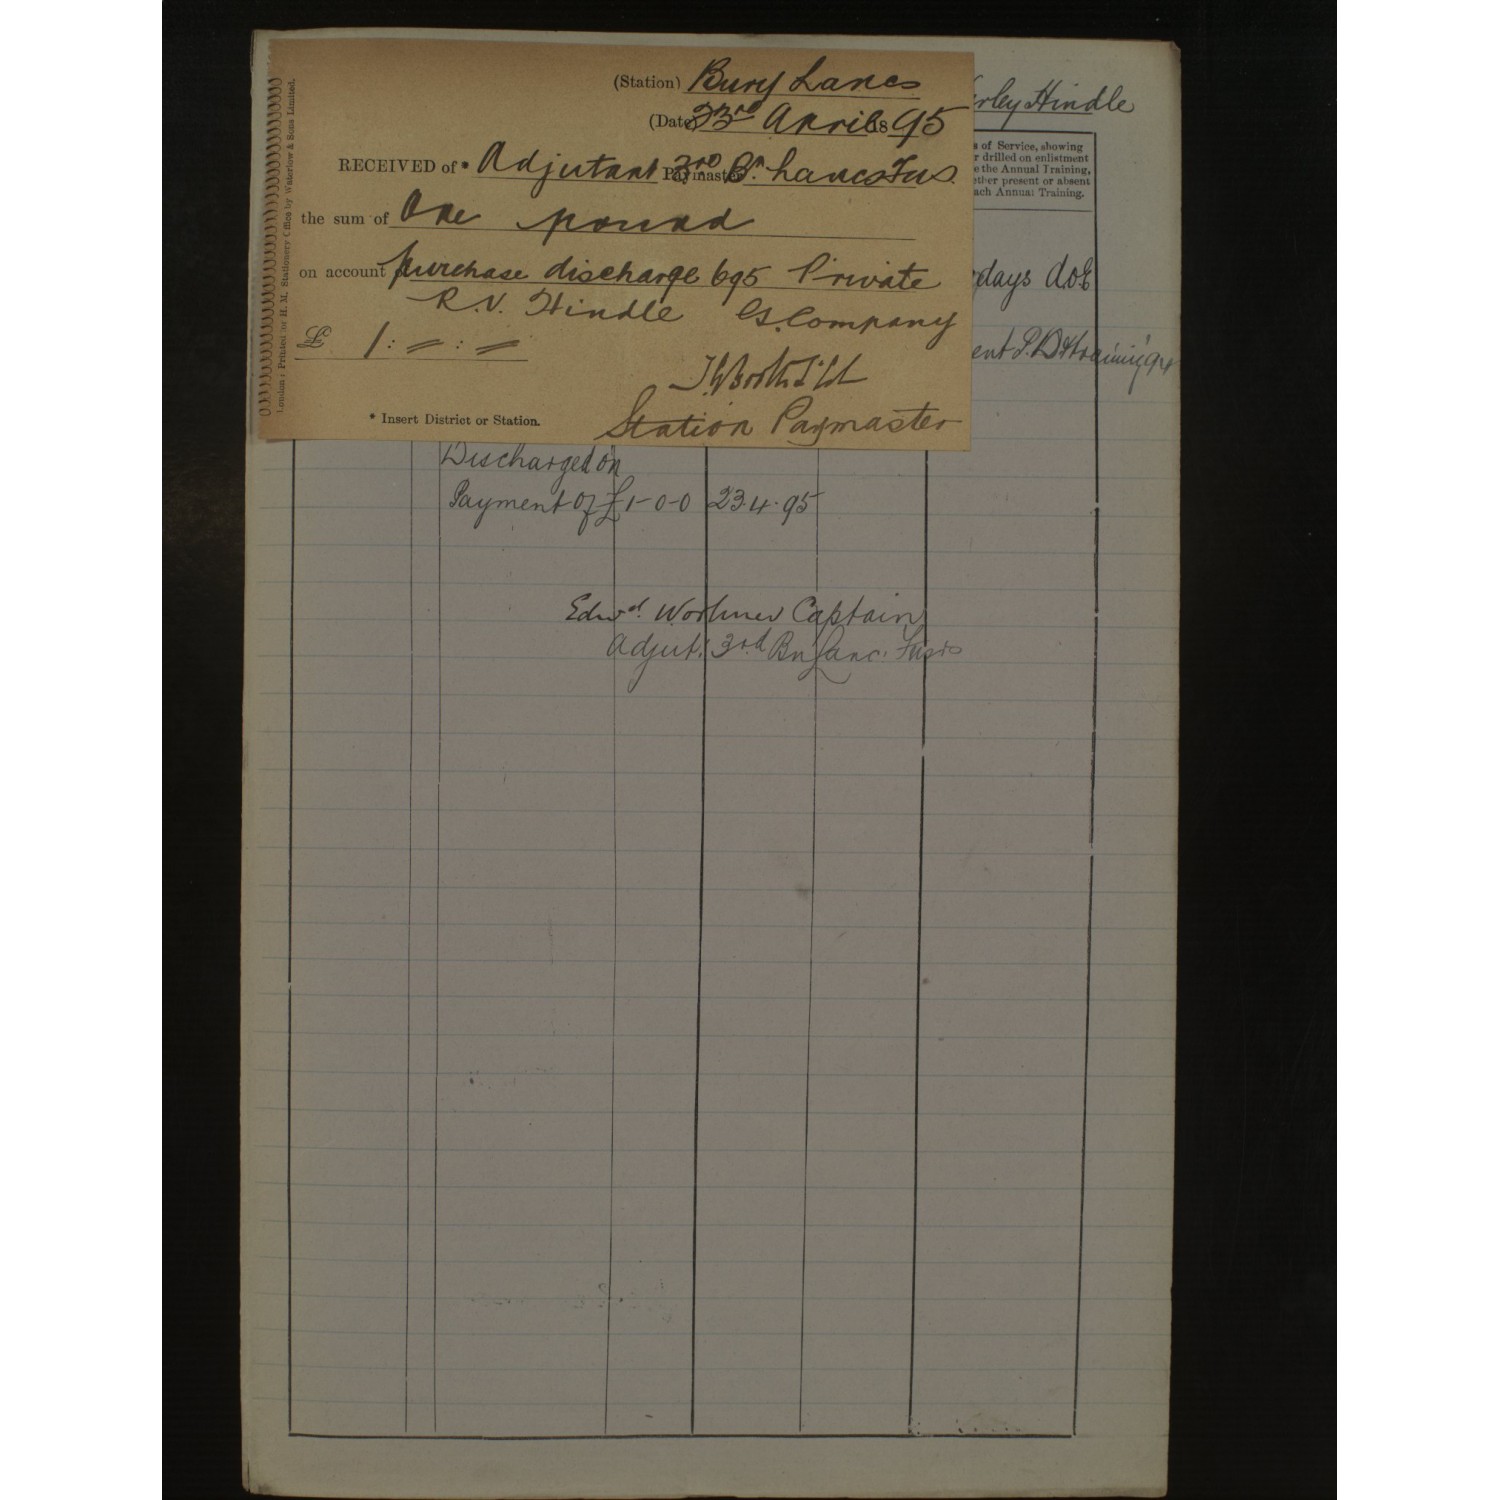 (Station) Bury Lancs
(Date) 23rd April 1895
RECEIVED of * Adjutant Paymaster 3rd Bn Lancs Fus.
the sum of One pound
on account of purchase discharge 695 Private
R.V. Hindle G. Company
£ 1 : = : =
Station Paymaster
* Insert District or Station.
London: Printed for H. M. Stationery Office by Waterlow & Sons Limited.
Hindle
s of Service, showing
r drilled on enlistment
e the Annual Training,
ether present or absent
ach Annual Training.
days d.o.E
Discharged on
Payment of £1-0-0 23.4.95
Edwd. Captain
Adjut. 3rd Bn Lanc. Fusrs